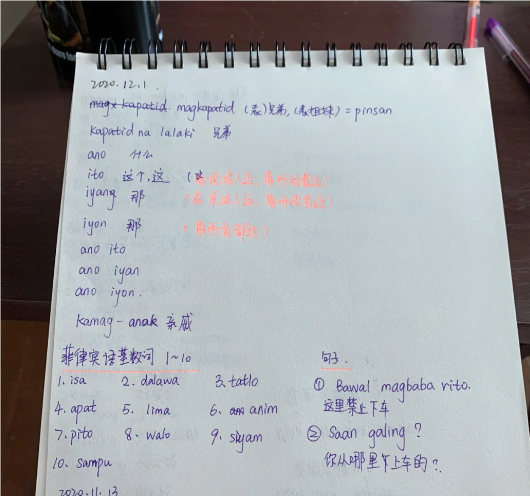 2020.12.1
mag- kapatid magkapatid (表)兄弟,(表姐妹) = pinsan
kapatid na lalaki 兄弟
ano 什么
ito 这个,这
iyang 那
iyon 那
ano ito
ano iyan
ano iyon.
kamag-anak 亲戚
菲律宾语基数词 1~10
1. isa 2. dalawa 3. tatlo
4. apat 5. lima 6. anim
7. pito 8. walo 9. siyam
10. sampu
句子.
① Bawal magbaba rito.
这里禁止下车
② Saan galing?
你从哪里上车的?
2020.11.13